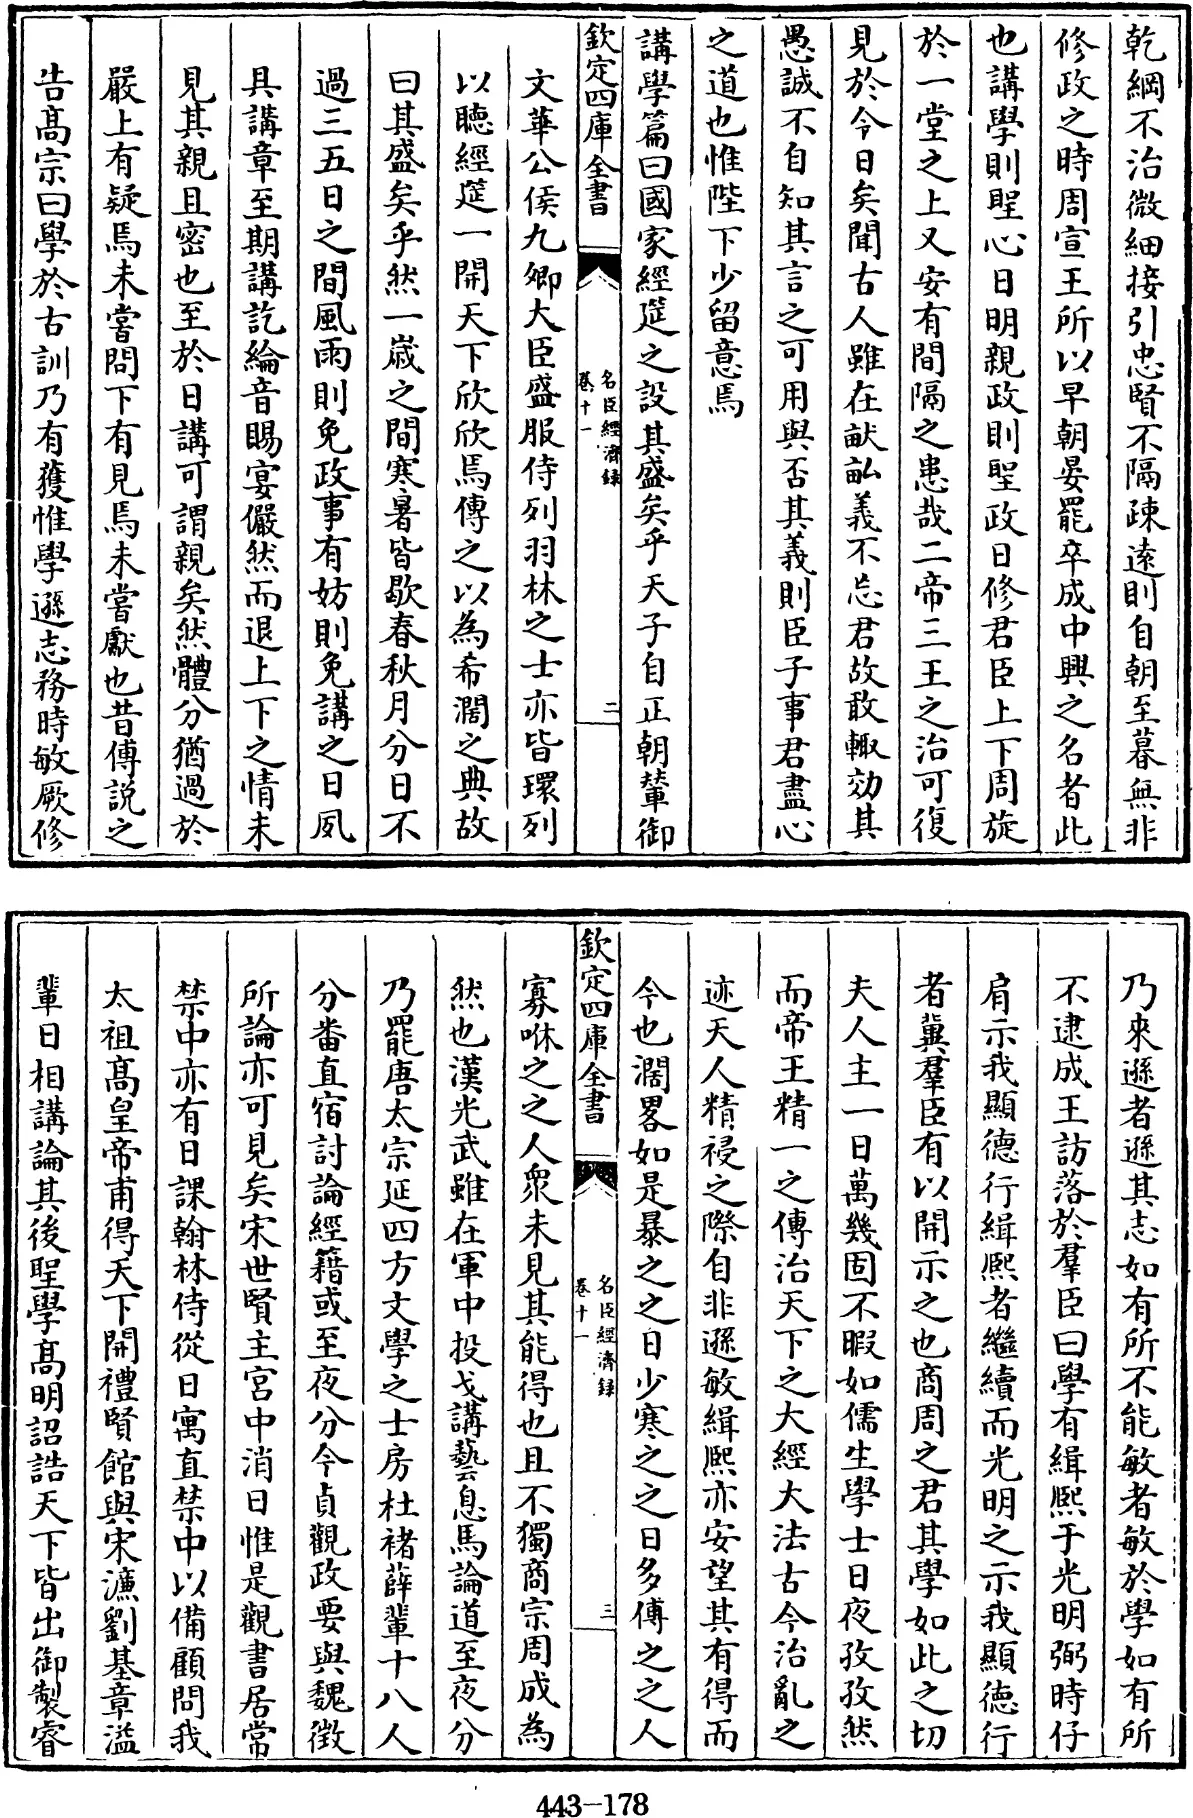 乾綱不治微細接引忠賢不隔疎逺則自朝至暮無非
修政之時周宣王所以早朝晏罷卒成中興之名者此
也講學則聖心日明親政則聖政日修君臣上下周旋
於一堂之上又安有間隔之患哉二帝三王之治可復
見於今日矣聞古人雖在畎畝義不忘君故敢輙効其
愚誠不自知其言之可用與否其義則臣子事君盡心
之道也惟陛下少留意焉
講學篇曰國家經筵之設其盛矣乎天子自正朝輦御
欽定四庫全書
名臣經濟録
卷十一
二
文華公侯九卿大臣盛服侍列羽林之士亦皆環列
以聽經筵一開天下欣欣焉傳之以為希濶之典故
曰其盛矣乎然一嵗之間寒暑皆歇春秋月分日不
過三五日之間風雨則免政事有妨則免講之日夙
具講章至期講訖綸音賜宴儼然而退上下之情未
見其親且密也至於日講可謂親矣然體分猶過於
嚴上有疑焉未嘗問下有見焉未嘗獻也昔傅説之
告髙宗曰學於古訓乃有獲惟學遜志務時敏厥修
乃來遜者遜其志如有所不能敏者敏於學如有所
不逮成王訪落於羣臣曰學有緝熙于光明弼時仔
肩示我顯德行緝熙者繼續而光明之示我顯德行
者冀羣臣有以開示之也商周之君其學如此之切
夫人主一日萬幾固不暇如儒生學士日夜孜孜然
而帝王精一之傳治天下之大經大法古今治亂之
迹天人精祲之際自非遜敏緝熙亦安望其有得而
今也濶畧如是暴之之日少寒之之日多傅之之人
欽定四庫全書
名臣經濟録
卷十一
三
寡咻之之人衆未見其能得也且不獨商宗周成為
然也漢光武雖在軍中投戈講藝息馬論道至夜分
乃罷唐太宗延四方文學之士房杜褚薛輩十八人
分番直宿討論經籍或至夜分今貞觀政要與魏徵
所論亦可見矣宋世賢主宮中消日惟是觀書居常
禁中亦有日課翰林侍從日寓直禁中以備顧問我
太祖髙皇帝甫得天下開禮賢館與宋濂劉基章溢
輩日相講論其後聖學髙明詔誥天下皆出御製睿
443-178